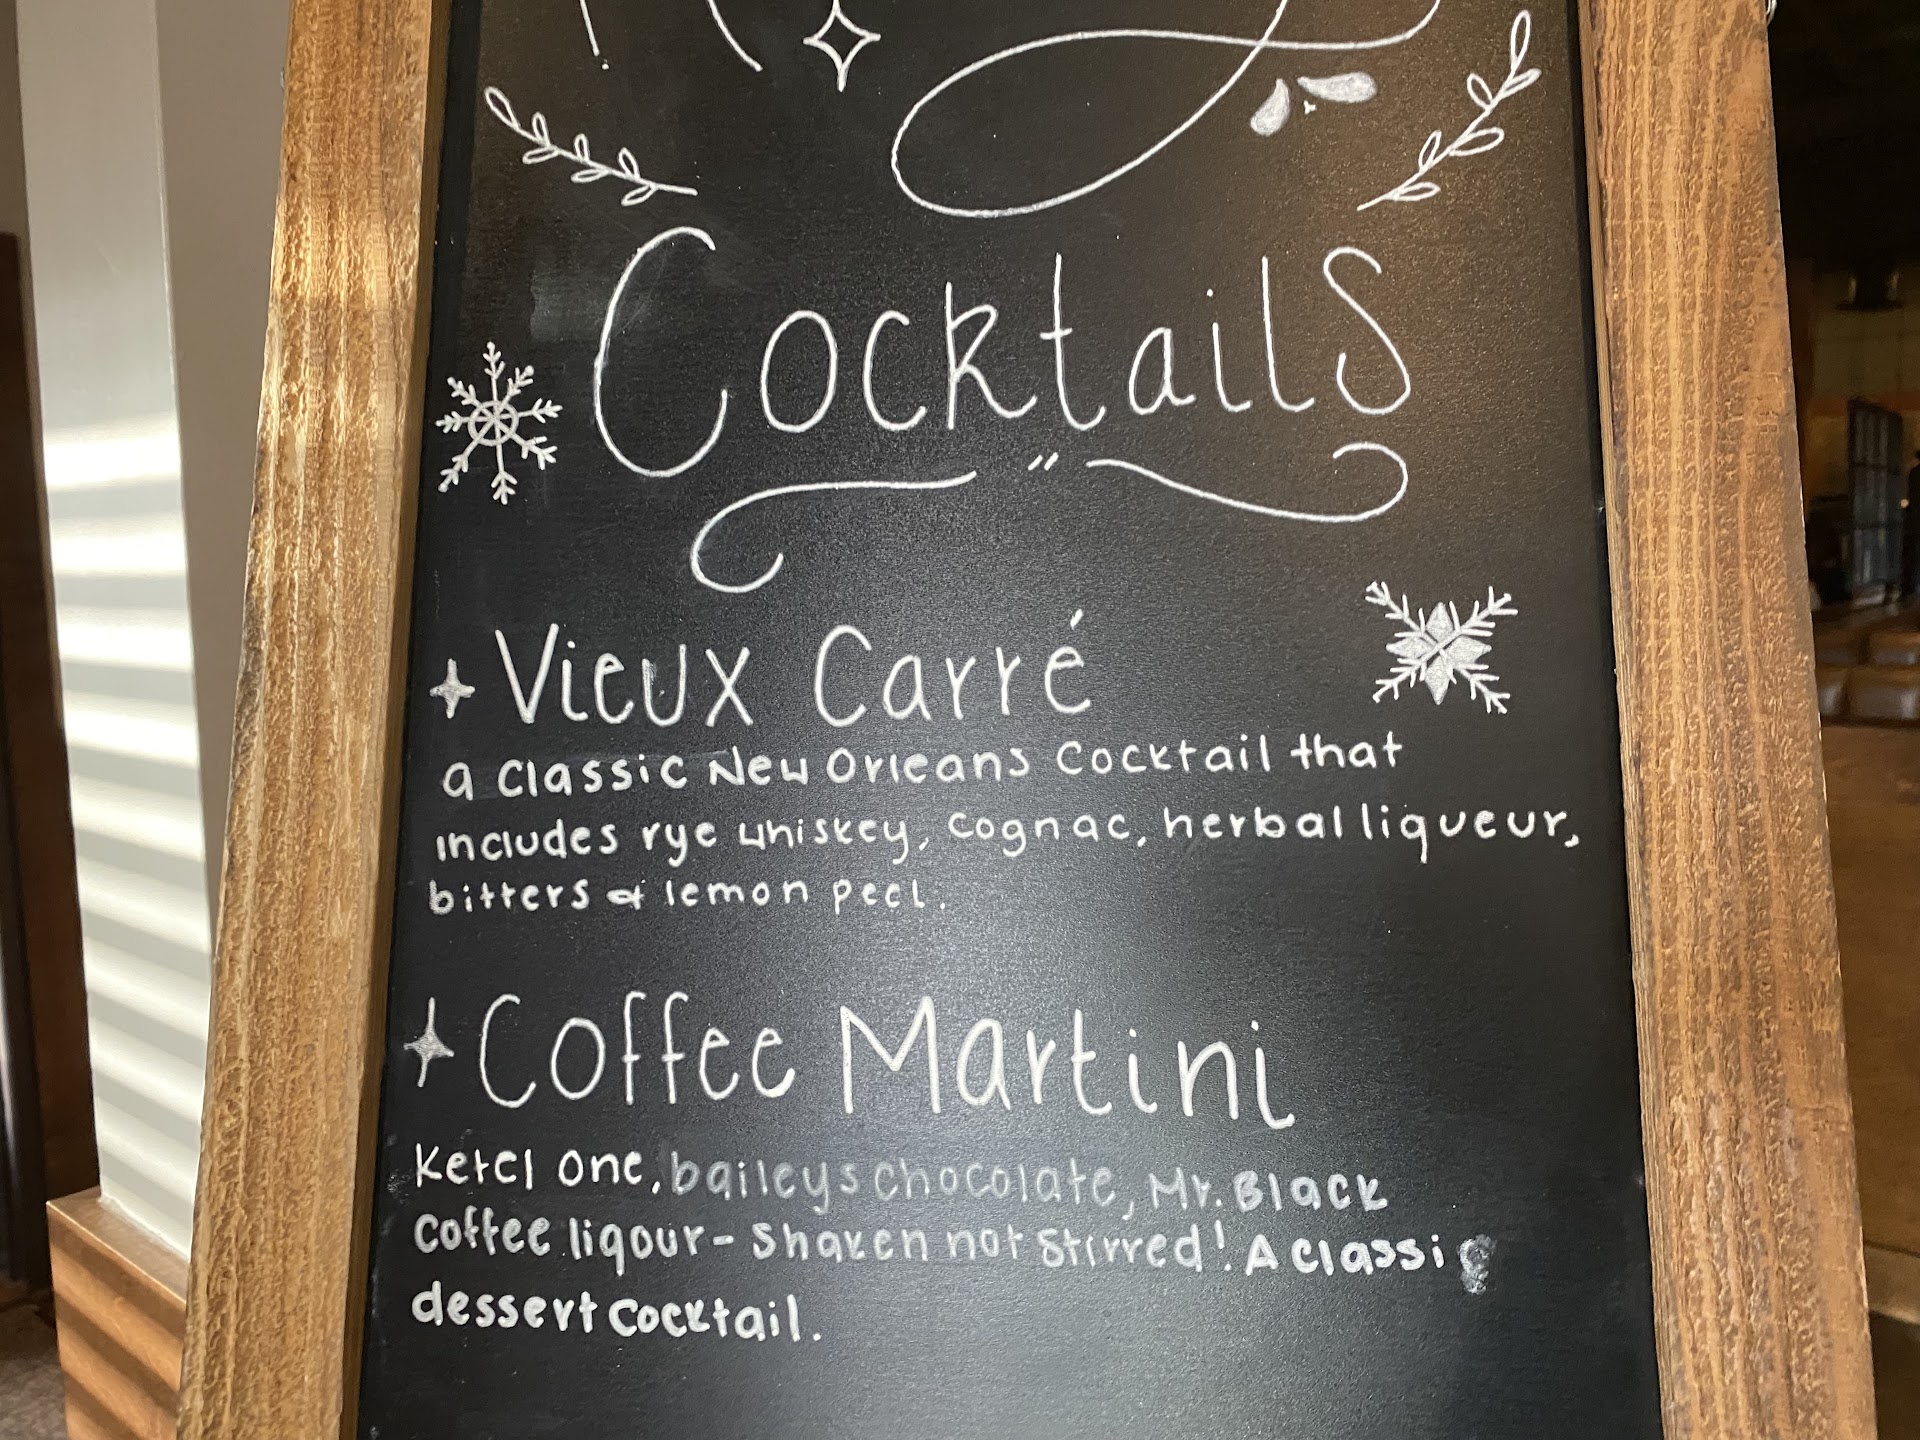 Cocktails
Vieux Carré
a classic New Orleans cocktail that
includes rye whiskey, cognac, herbal liqueur,
bitters & lemon peel.
Coffee Martini
Ketel One, baileys chocolate, Mr. Black
coffee liqour - Shaken not Stirred! A classic
dessert cocktail.